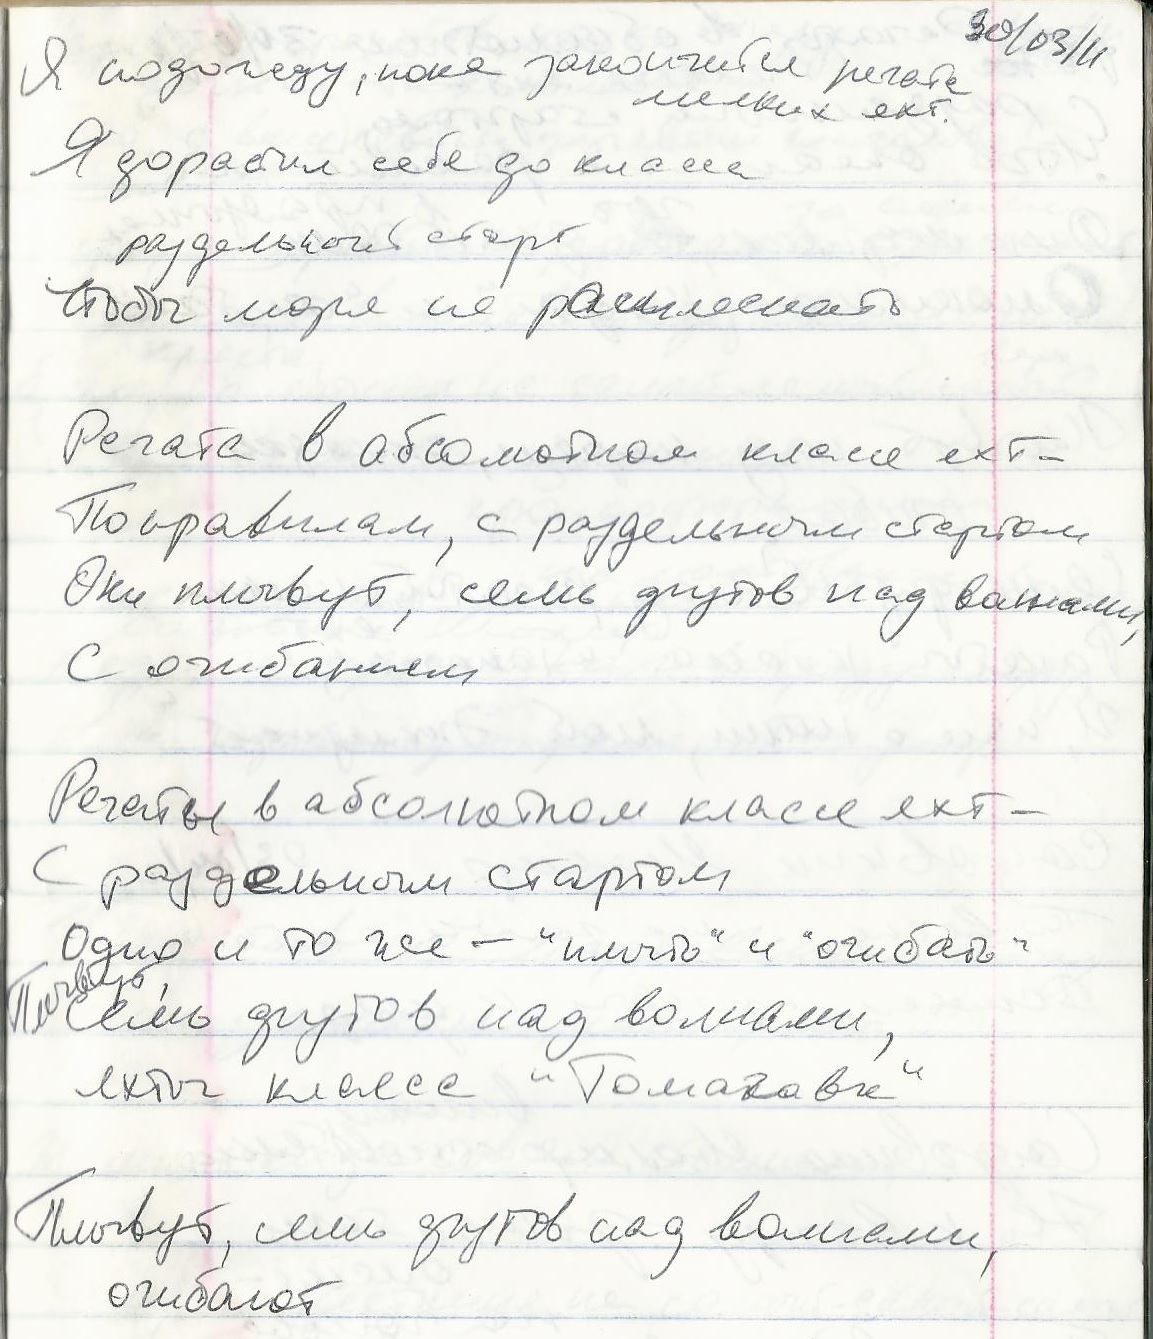 30/03/11
Я подожду, пока закончится регата
мелких яхт.
Я дорастил себя до класса
раздельный старт
Чтобы моря не расплескать
Регата в абсолютном классе яхт –
По правилам, с раздельным стартом
Они плывут, семь футов над волнами,
С огибанием
Регаты в абсолютном классе яхт –
С раздельным стартом
Одно и то же – "плыть" и "огибать"
Плывут,
семь футов над волнами,
яхты класса "Томагавк"
Плывут, семь футов над волнами,
огибают